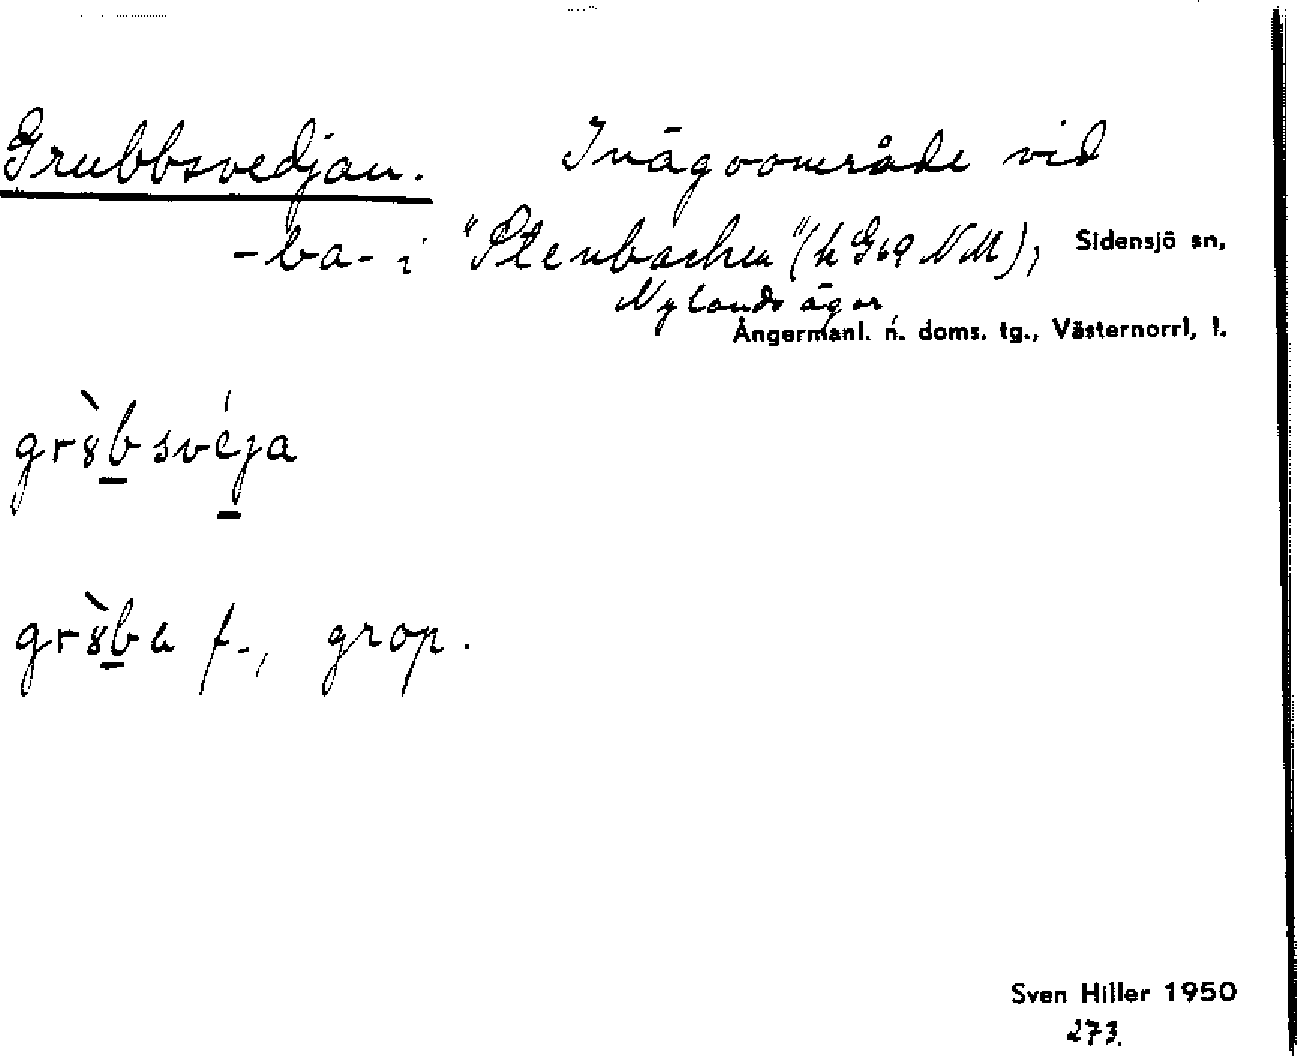 Grubbsvedjan. Inägoområde vid
-ba- i "Stenbacken" (h G69 NM), Sidensjö sn,
Nylands ägor,
Ångermanl. n. doms. tg., Västernorrl. l.
grò̤bsvéja
grò̤ba f., grop.
Sven Hiller 1950
273.